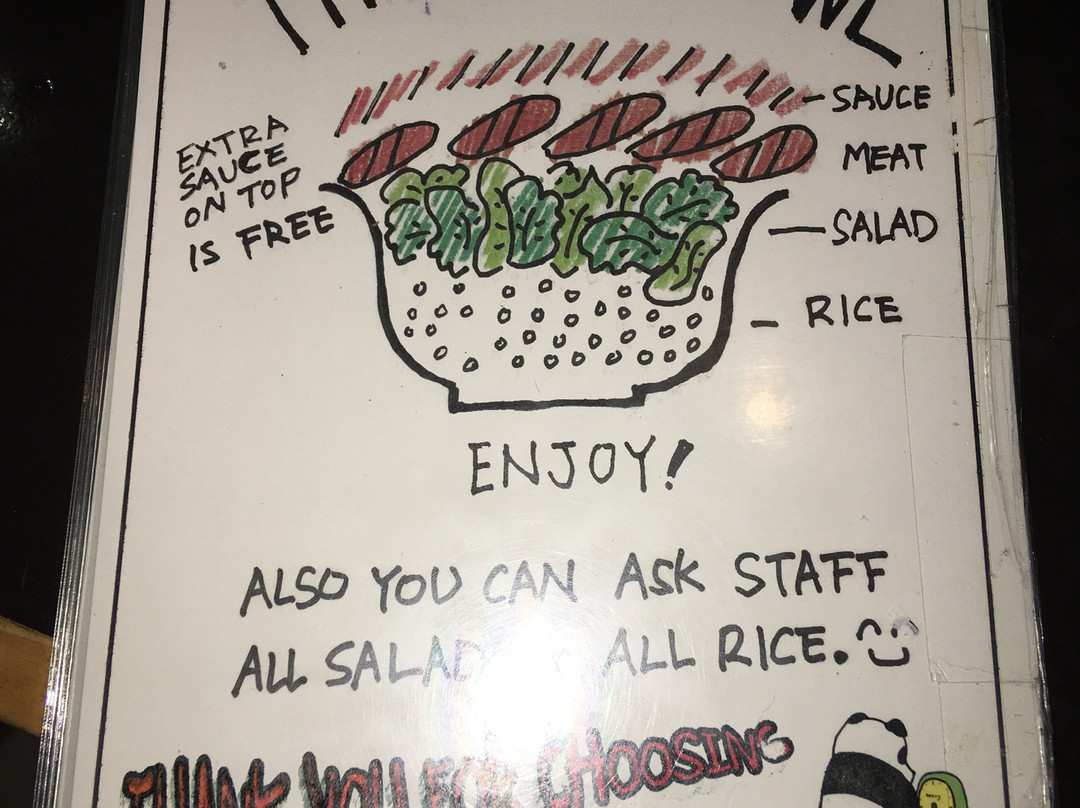 SAUCE
MEAT
SALAD
RICE
EXTRA
SAUCE
ON TOP
IS FREE
ENJOY!
ALSO YOU CAN ASK STAFF
ALL SALAD ALL RICE.
THANK YOU FOR CHOOSING